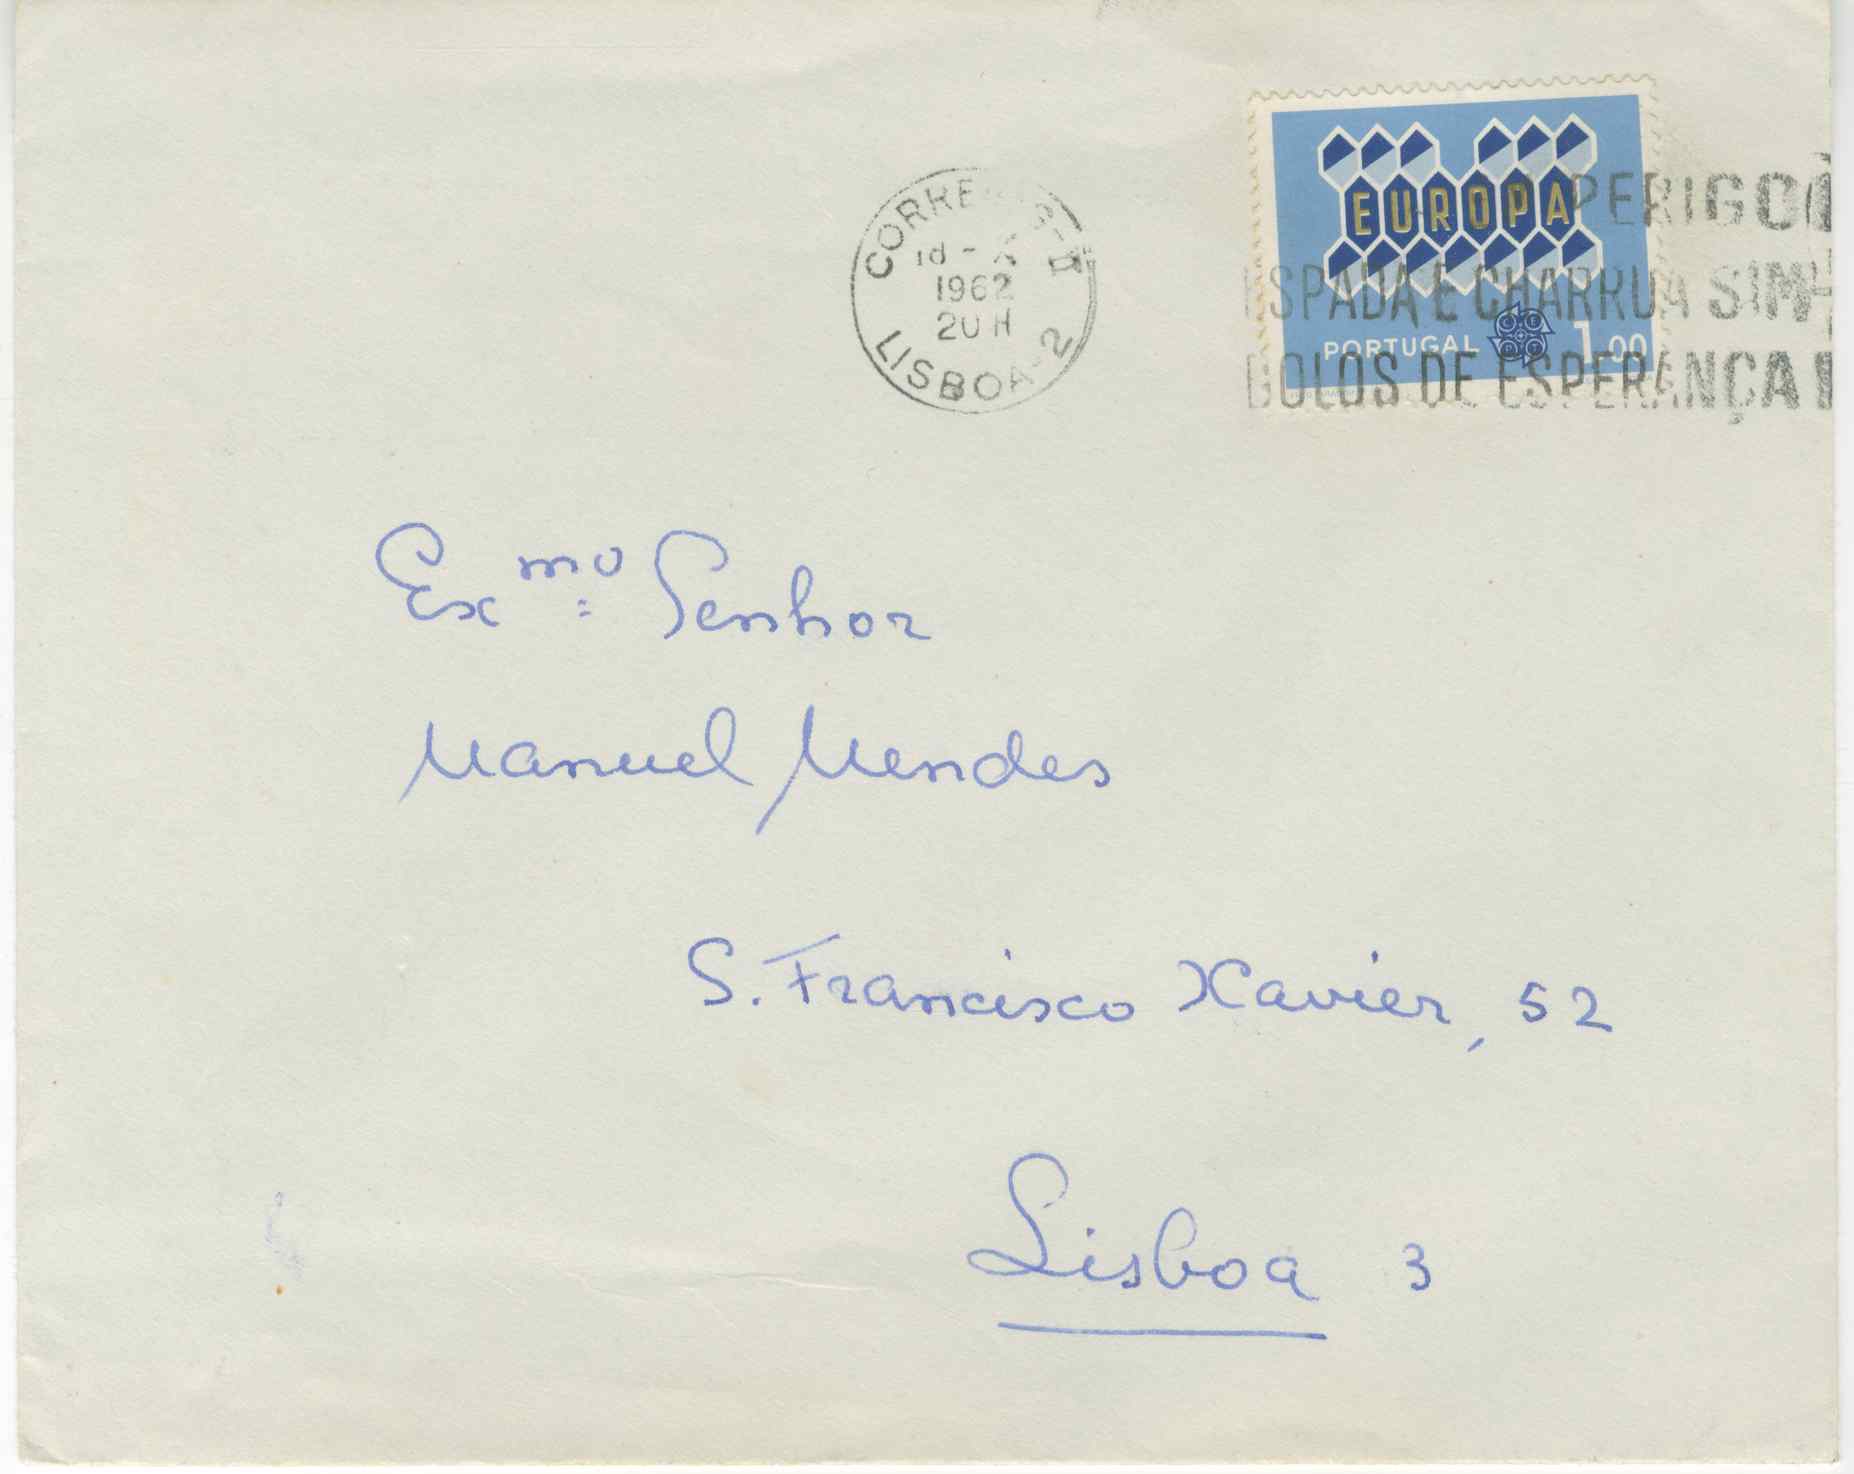 CORREIOS-
1962
20 H
LISBOA-2
EUROPA
PORTUGAL 1.00
PERIGO
ESPADA E CHARRUA SIM-
BOLOS DE ESPERANÇA
Exmo: Senhor
Manuel Mendes
S. Francisco Xavier, 52
Lisboa 3